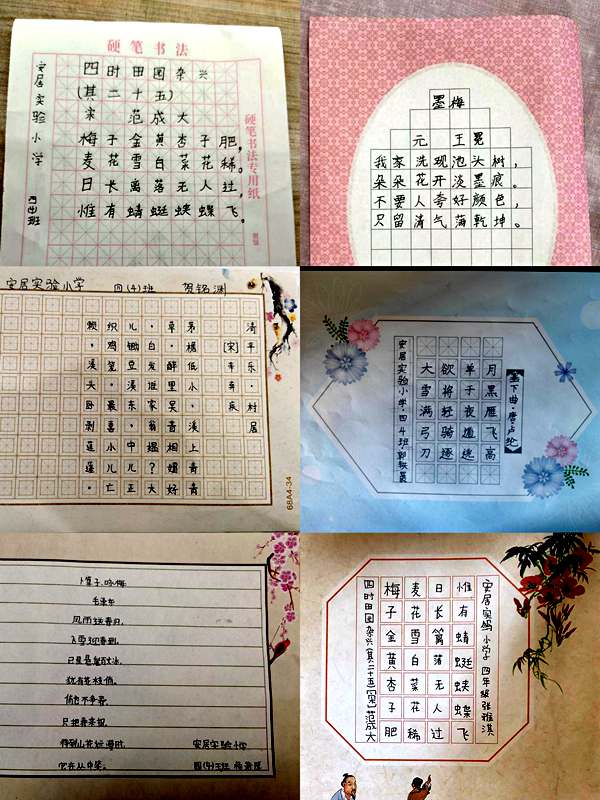 硬笔书法
安居实验小学
四(4)班
四时田园杂兴
(其二十五)
宋 范成大
梅子金黄杏子肥，
麦花雪白菜花稀。
日长离落无人过，
惟有蜻蜓蛱蝶飞。
硬笔书法专用纸
墨梅
元 王冕
我家洗现池头树，
朵朵花开淡墨痕。
不要人夸好颜色，
只留清气满乾坤。
安居实验小学 四(4)班 贺铭渊
清平乐·村居
[宋]辛弃疾
茅檐低小，溪上青青
草。醉里吴音相媚好
，白发谁家翁媪？大
儿锄豆溪东，中儿正
织鸡笼。最喜小儿亡
赖，溪头卧剥莲蓬。
68A4-34
塞下曲·唐·卢纶
月黑雁飞高
单于夜遁逃
欲将轻骑逐
大雪满弓刀
安居实验小学·四4班·郭
卜算子.咏梅
毛泽东
风雨送春归，
飞雪迎春到。
已是悬崖百丈冰，
犹有花枝俏。
俏也不争春，
只把春来报。
待到山花烂漫时，
她在丛中笑。
安居实验小学
四(4)班
安居实验小学 四年级 张雅淇
惟有蜻蜓蛱蝶飞
日长篱落无人过
麦花雪白菜花稀
梅子金黄杏子肥
四时田园杂兴(其二十五)[宋]范成大